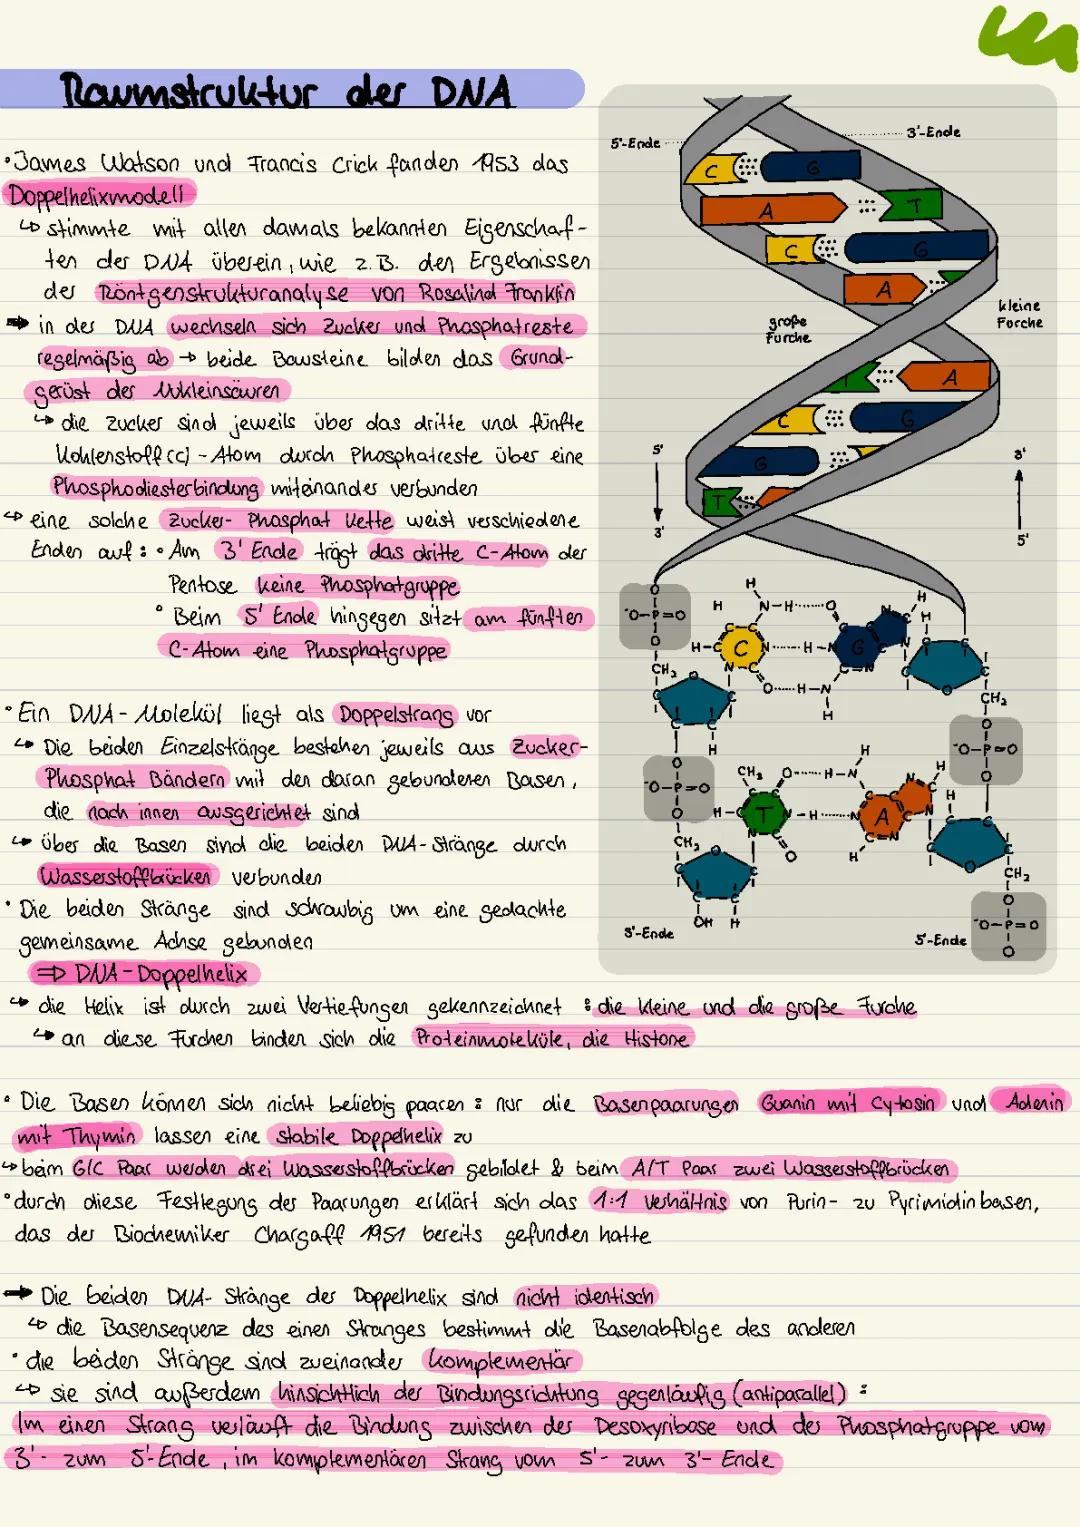 Raumstruktur der DNA
• James Watson und Francis Crick fanden 1953 das
Doppelhelixmodell
↳ stimmte mit allen damals bekannten Eigenschaf-
ten der DNA überein, wie z.B. den Ergebnissen
der Röntgenstrukturanalyse von Rosalind Franklin
➡ in der DNA wechseln sich Zucker und Phosphatreste
regelmäßig ab → beide Bausteine bilden das Grund-
gerüst der Nukleinsäuren
↳ die Zucker sind jeweils über das dritte und fünfte
Kohlenstoff (C) - Atom durch Phosphatreste über eine
Phosphodiesterbindung miteinander verbunden
↳ eine solche Zucker- Phosphat Kette weist verschiedene
Enden auf: • Am 3' Ende trägt das dritte C-Atom der
Pentose keine Phosphatgruppe
• Beim 5' Ende hingegen sitzt am fünften
C-Atom eine Phosphatgruppe
• Ein DNA-Molekül liegt als Doppelstrang vor
↳ Die beiden Einzelstränge bestehen jeweils aus Zucker-
Phosphat Bändern mit den daran gebundenen Basen,
die nach innen ausgerichtet sind
↳ über die Basen sind die beiden DNA-Stränge durch
Wasserstoffbrücken verbunden
• Die beiden Stränge sind schraubig um eine gedachte
gemeinsame Achse gebunden
⇒ DNA-Doppelhelix
↳ die Helix ist durch zwei Vertiefungen gekennzeichnet : die kleine und die große Furche
↳ an diese Furchen binden sich die Proteinmoleküle, die Histone
• Die Basen können sich nicht beliebig paaren : nur die Basenpaarungen Guanin mit Cytosin und Adenin
mit Thymin lassen eine stabile Doppelhelix zu
↳ beim G/C Paar werden drei Wasserstoffbrücken gebildet & beim A/T Paar zwei Wasserstoffbrücken
• durch diese Festlegung der Paarungen erklärt sich das 1:1 Verhältnis von Purin- zu Pyrimidinbasen,
das der Biochemiker Chargaff 1951 bereits gefunden hatte
➡ Die beiden DNA- Stränge der Doppelhelix sind nicht identisch
↳ die Basensequenz des einen Stranges bestimmt die Basenabfolge des anderen
• die beiden Stränge sind zueinander komplementär
↳ sie sind außerdem hinsichtlich der Bindungsrichtung gegenläufig (antiparallel) :
Im einen Strang verläuft die Bindung zwischen der Desoxyribose und der Phosphatgruppe vom
3'- zum 5'-Ende, im komplementären Strang vom 5'- zum 3'- Ende
5'-Ende
3'-Ende
C G
A T
C G
A
große
Furche
kleine
Forche
T A
C G
G
T
5'
3'
3'
5'
H
H N-H O N C-H H
⁻O-P=O
O
H-C C N H-N G C N
CH₂ O H-N
H
CH₂
H
⁻O-P=O
CH₃ O H-N H
⁻O-P=O
H-C T N-H N A
CH₂ O
H
CH₂
OH H
3'-Ende
5'-Ende
⁻O-P=O
O